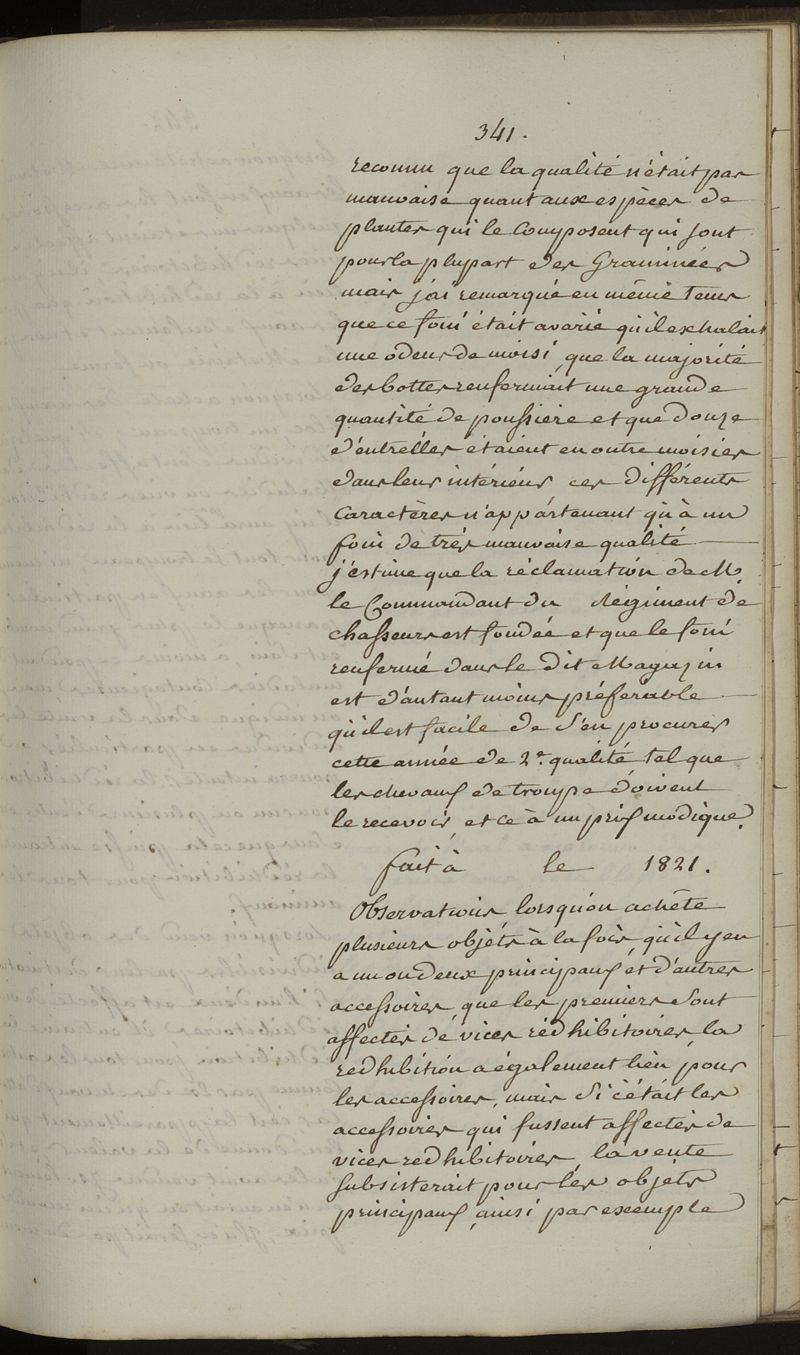 341.
reconnu que la qualité n'était pas
mauvaise quant aux espèces de
plantes qui le composent qui sont
pour la plupart des Graminées
mais j'ai remarqué en même tems
que ce foin était avarié qu'il exhalait
une odeur de moisi, que la majorité
des bottes renfermait une grande
quantité de poussiere et que douze
d'entrélles étaient en outre moisies
dans leur intérieur ces différents
caractères n'appartenant qu'à un
foin de très mauvaise qualité
j'estime que la réclamation de M.
le Commandant du Régiment de
chasseurs est fondée et que le foin
renfermé dans le dit Magazin
est d'autant moins préférable
qu'il est facile de s'en procurer
cette année de 2e. qualité tel que
les chevaux de troupe doivent
le recevoir, et ce à un prix modique.
fait à le 1821.
Observations lorsqu'on achête
plusieurs objéts à la fois, qu'il y en
a un ou deux principaux, et d'autres
accessoires, que les premiers sont
affectés de vices rédhibitoires, la
redhibition a également lieu, pour
les accessoires, mais si c'était les
accessoires qui fussent affectés de
vices redhibitoires, la vente
subsisterait pour les objets
principaux, ainsi par exemple